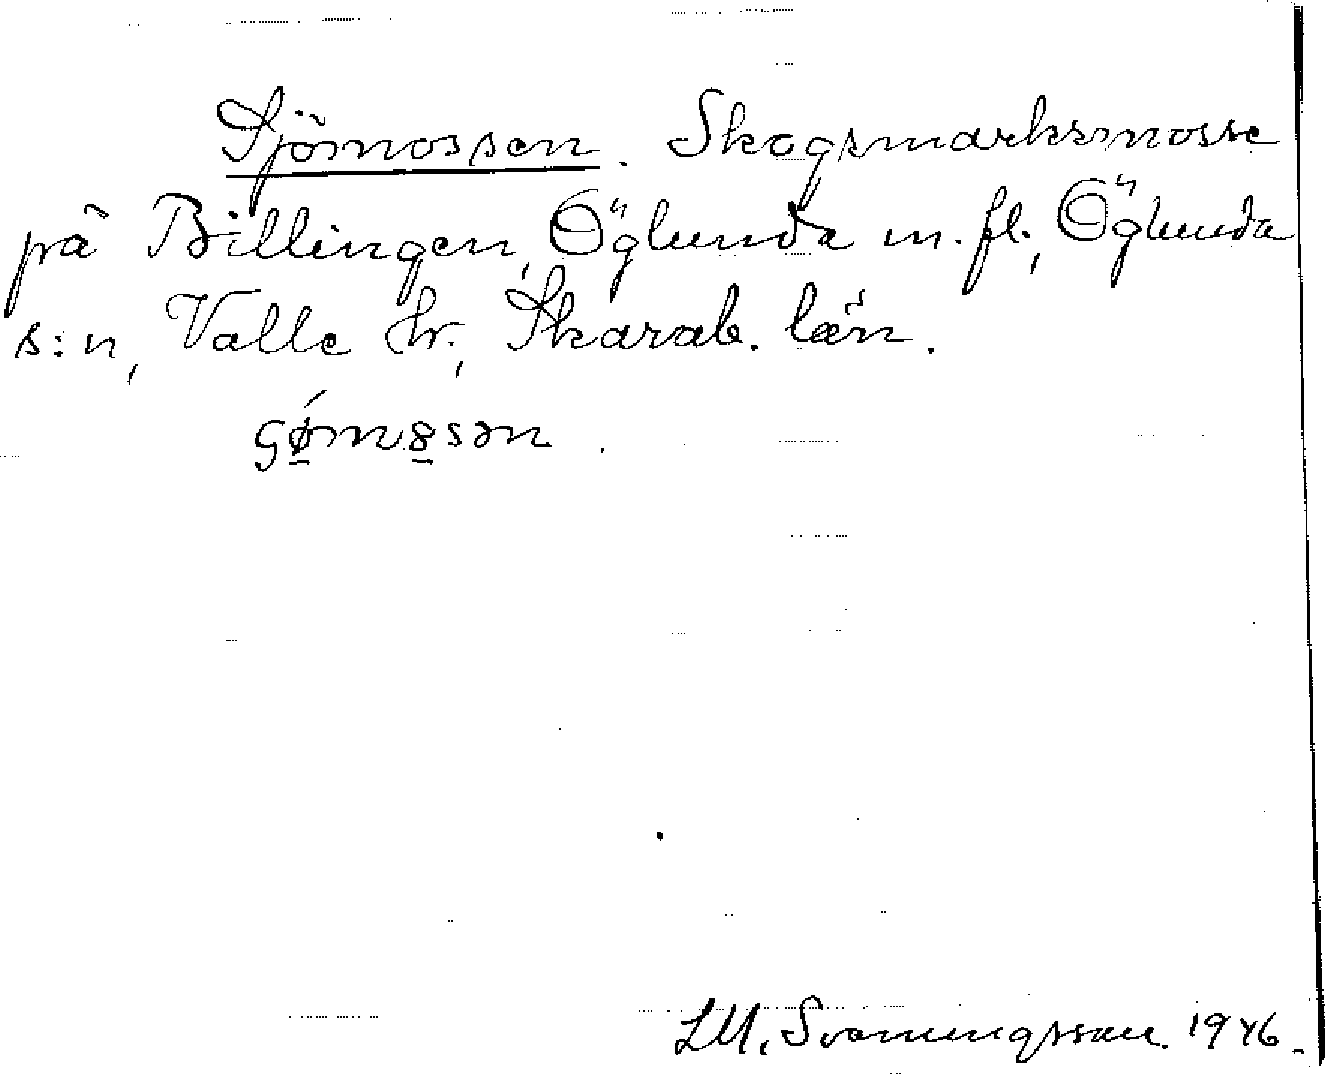 Sjömossen. Skogsmarksmosse
på Billingen, Öglunda m. fl., Öglunda
s:n, Valle hr., Skarab. län.
LM. Svanungsson. 1946.